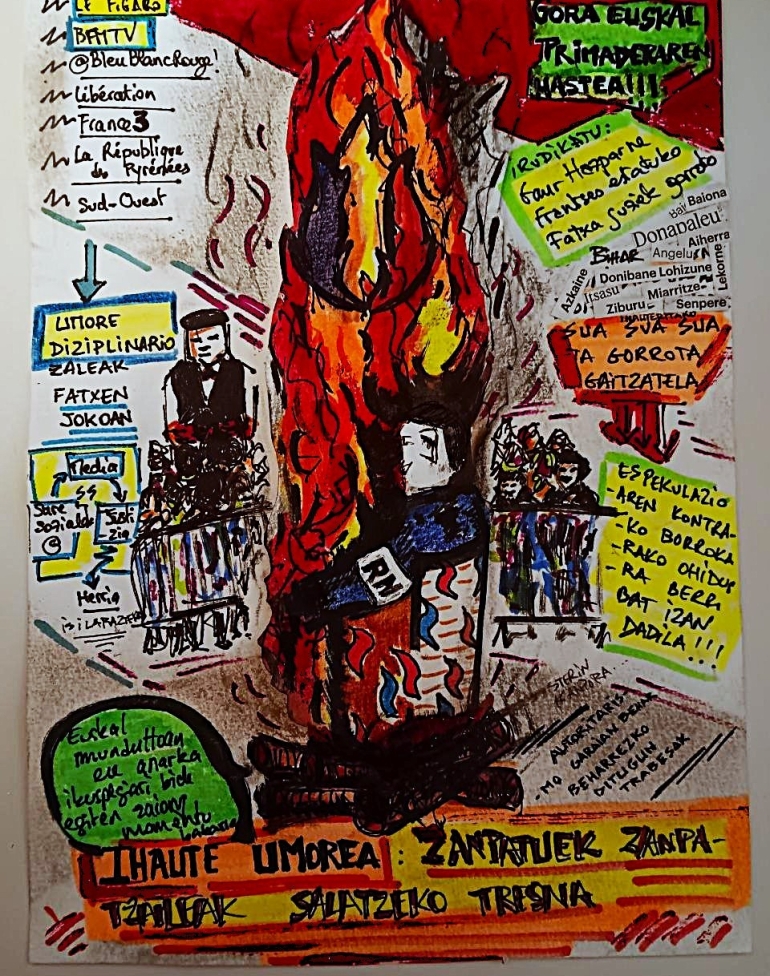 LE FIGARO
BFMTV
@BleuBlancRouge!
Libération
France3
La République
des Pyrénées
Sud-Ouest
UMORE
DIZIPLINARIO
ZALEAK
FATXEN
JOKOAN
Media
Sare
Sozialak
@
Justi
zia
Herria
isilarazteko
GORA EUSKAL
PRIMADERAREN
HASTEA!!!
IRUDIKATU:
Gaur Hazparne
Frantses estatuko
Fatxa guziek gorroto
Baiona
Donapaleu
BIHAR
Angelu
Aiherra
Azkaine
Itsasu
Donibane Lohizune
Lekorne
Ziburu
Miarritze
Senpere
IHAUTERITAKO
SUA SUA SUA
TA GORROTA
GAITZATELA
ESPEKULAZIO
-AREN KONTRA-
-KO BORROKA
-RAKO OHIDU
-RA BERRI
BAT IZAN
DADILA!!!
RN
AUTORITARIS
-MO GARAIAN BEHAR
BEHARREZKO
DITUGUN
TRABESAK
Euskal
munduttoan
ere anarka
ikuspegiari bide
egiten zaion
momentu
bakarra
IHAUTE UMOREA: ZANPATUEK ZANPA-
TZAILEAK SALATZEKO TRESNA